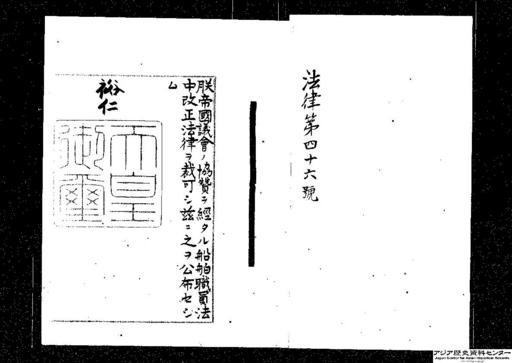 法律第四十六號
朕帝國議會ノ協贊ヲ經タル船舶職員法
中改正法律ヲ裁可シ玆ニ之ヲ公布セシ
ム
裕仁
天皇
御璽
アジア歴史資料センター
Japan Center for Asian Historical Records